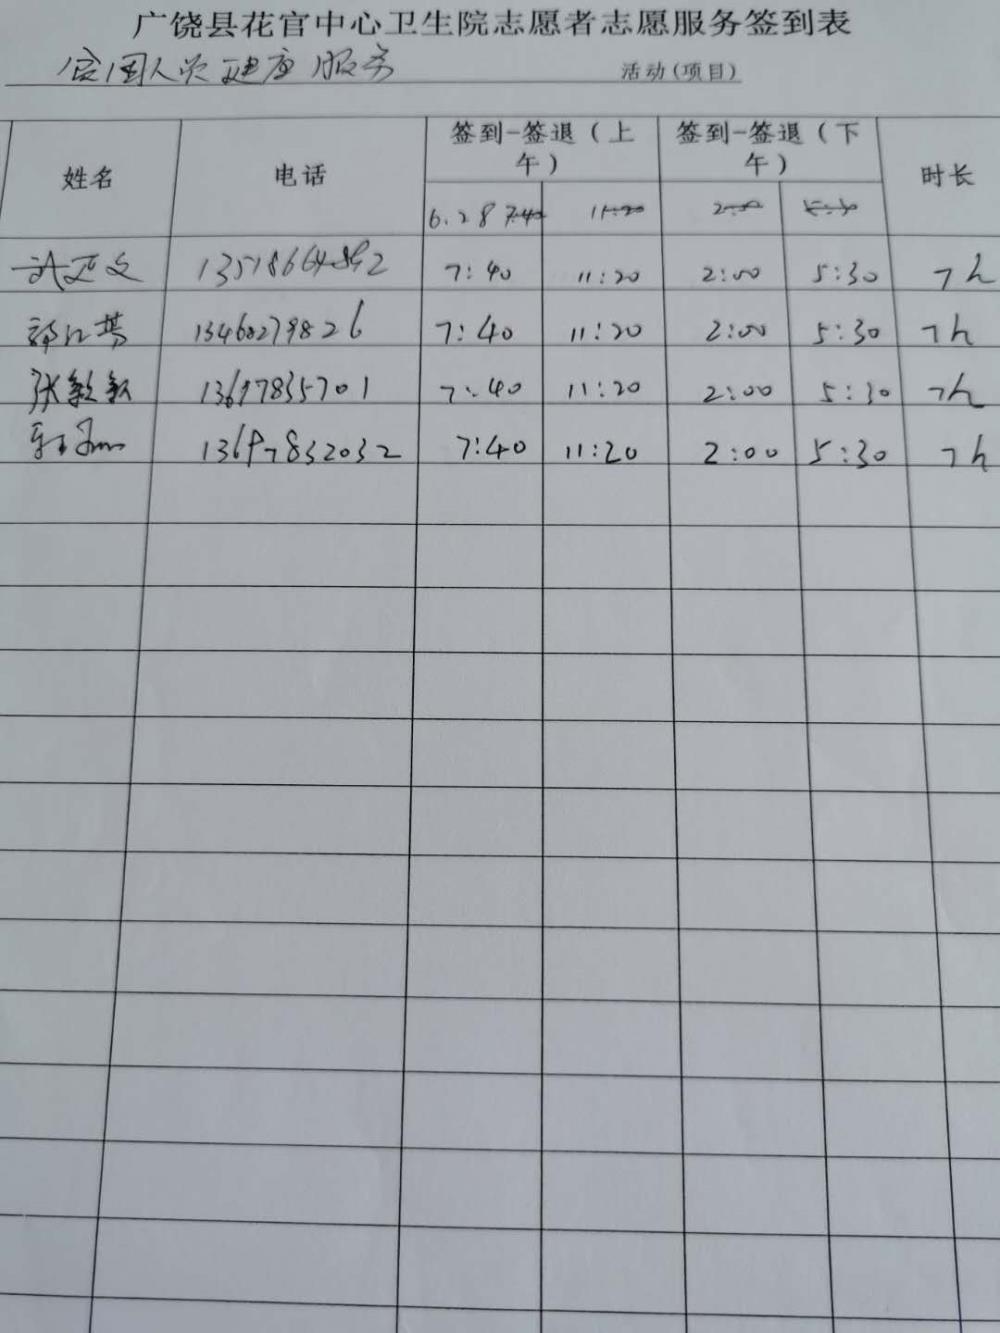 广饶县花官中心卫生院志愿者志愿服务签到表
人员健康服务 活动(项目)
姓名 电话 签到-签退（上午） 签到-签退（下午） 时长
6.28 7:40 11:20 2:00 5:30
武亚文 7:40 11:20 2:00 5:30 7h
13460279826 7:40 11:20 2:00 5:30 7h
张款款 13697835701 7:40 11:20 2:00 5:30 7h
13697832032 7:40 11:20 2:00 5:30 7h